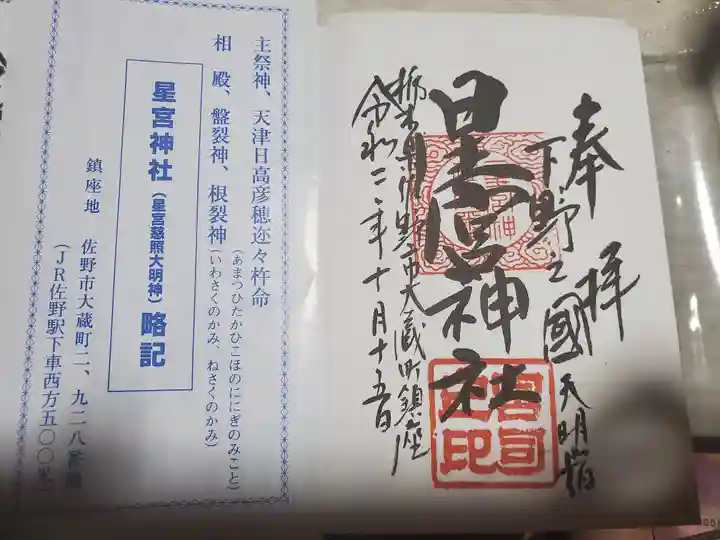 奉拝
下野之國天明宿
星宮神社
宮司之印
栃木県佐野市大蔵町鎮座
令和二年十月十五日
主祭神、天津日高彦穂迩々杵命
(あまつひたかひこほのににぎのみこと)
相殿、磐裂神、根裂神
(いわさくのかみ、ねさくのかみ)
星宮神社(星宮慈照大明神)略記
鎮座地 佐野市大蔵町二、九二八番地
(JR佐野駅下車西方五〇〇米)